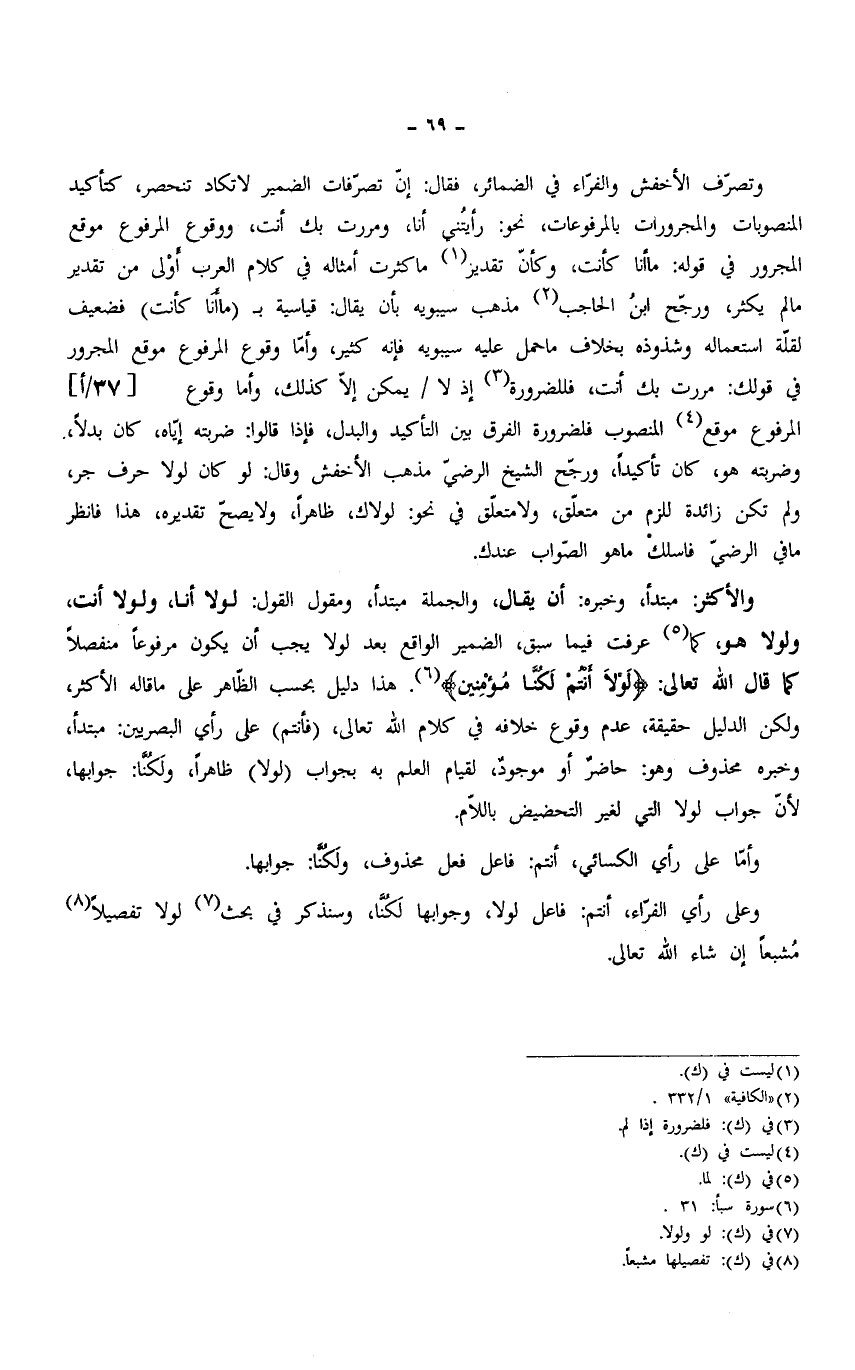 - ٦٩ -
وتصرّف الأخفش والفرّاء في الضمائر، فقال: إنّ تصرّفات الضمير لاتكاد تنحصر، كتأكيد
المنصوبات والمجرورات بالمرفوعات، نحو: رأيتُني أنا، ومررت بك أنت، ووقوع المرفوع موقع
المجرور في قوله: ماأنا كأنت، وكأنّ تقديز(١) ماكثرت أمثاله في كلام العرب أَوْلى من تقدير
مالم يكثر، ورجّح ابنُ الحاجب(٢) مذهب سيبويه بأن يقال: قياسية بـ (ماأَنَا كأنت) فضعيف
لقلّة استعماله وشذوذه بخلاف ماحمل عليه سيبويه فإنه كثير، وأمّا وقوع المرفوع موقع المجرور
في قولك: مررت بك أنت، فللضرورة(٣) إذ لا / يمكن إلاّ كذلك، وأما وقوع [٣٧/أ]
المرفوع موقع(٤) المنصوب فلضرورة الفرق بين التأكيد والبدل، فإذا قالوا: ضربته إيّاه، كان بدلاً،
وضربته هو، كان تأكيداً، ورجّح الشيخ الرضيّ مذهب الأخفش وقال: لو كان لولا حرف جر،
ولم تكن زائدة للزم من متعلّق، ولامتعلّق في نحو: لولاك، ظاهراً، ولايصحّ تقديره، هذا فانظر
مافي الرضيّ فاسلكْ ماهو الصّواب عندك.
والأكثر: مبتدأ، وخبره: أن يقـال، والجملة مبتدأ، ومقول القول: لـولا أنـا، ولـولا أنت،
ولولا هـو، كما(٥) عرفت فيما سبق، الضمير الواقع بعد لولا يجب أن يكون مرفوعاً منفصلاً
كما قال الله تعالى: ﴿لَوْلاَ أَنْتُمْ لَكُنَّـا مُـؤْمِنِين﴾(٦). هذا دليل بحسب الظّاهر على ماقاله الأكثر،
ولكن الدليل حقيقة، عدم وقوع خلافه في كلام الله تعالى، (فأنتم) على رأي البصريين: مبتدأ،
وخبره محذوف وهو: حاضرٌ أو موجودٌ، لقيام العلم به بجواب (لولا) ظاهراً، ولَكُنَّا: جوابها،
لأنّ جواب لولا التي لغير التحضيض باللاّم.
وأمّا على رأي الكسائي، أنتم: فاعل فعل محذوف، ولَكُنَّا: جوابها.
وعلى رأي الفرّاء، أنتم: فاعل لولا، وجوابها لَكُنَّا، وسنذكر في بحث(٧) لولا تفصيلاً(٨)
مُشبعاً إن شاء الله تعالى.
(١) ليست في (ك).
(٢) «الكافية» ٣٣٢/١ .
(٣) في (ك): فلضرورة إذا لم.
(٤) ليست في (ك).
(٥) في (ك): لما.
(٦) سورة سبأ: ٣١ .
(٧) في (ك): لو ولولا.
(٨) في (ك): تفصيلها مشبعاً.